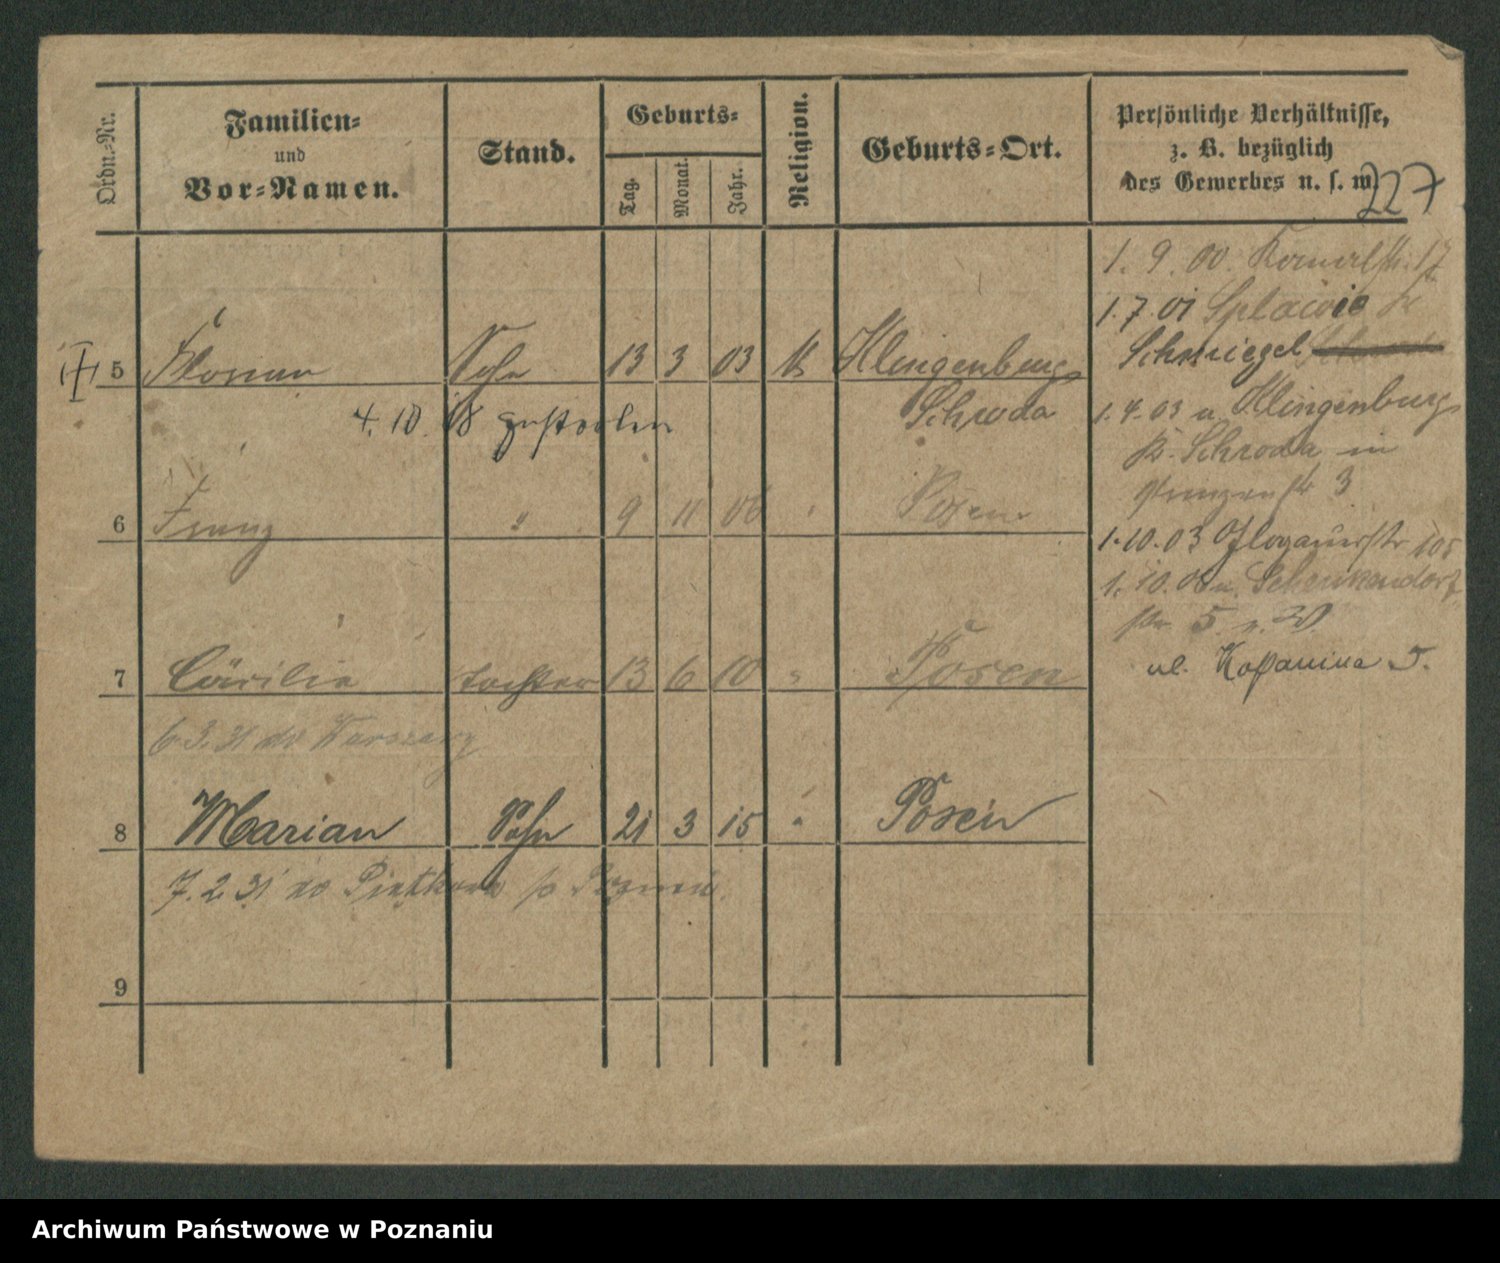 Ordn.-Nr.
Familien=
und
Vor=Namen.
Stand.
Geburts=
Tag.
Monat.
Jahr.
Religion.
Geburts=Ort.
Persönliche Verhältnisse,
z. B. bezüglich
des Gewerbes u. s. w.
227
1. 9. 00.
1. 7. 01 Splawie
Schmiegel
5 Florian Sohn 13 3 03 Klingenburg
Schroda
4. 10. 18 gestorben
1. 4. 03 n. Klingenburg
Kr. Schroda in
3
6 Franz " 9 11 06 Posen
1. 10. 03 Glogauerstr 105
1. 10. 06 n. Schenkendorf
str. 5
7 Cäcilie Tochter 13 6 10 " Posen
ul. Kopanina 5.
6 3. 31 do Warszawy
8 Marian Sohn 21 3 15 " Posen
7. 2. 31 do Piątkowa p Poznań
9
Archiwum Państwowe w Poznaniu